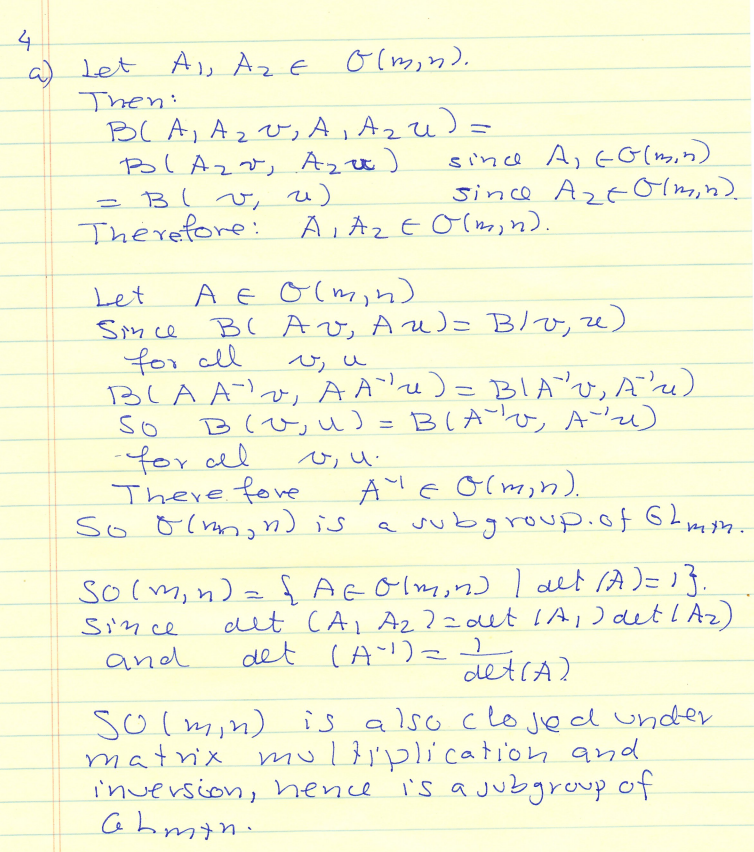 4
a) Let A₁, A₂ ∈ O(m,n).
Then:
B(A₁A₂v, A₁A₂u) =
B(A₂v, A₂u) since A₁ ∈ O(m,n)
= B(v, u) since A₂ ∈ O(m,n).
Therefore: A₁A₂ ∈ O(m,n).
Let A ∈ O(m,n)
Since B(Av, Au) = B(v, u)
for all v, u
B(AA⁻¹v, AA⁻¹u) = B(A⁻¹v, A⁻¹u)
So B(v, u) = B(A⁻¹v, A⁻¹u)
for all v, u.
Therefore A⁻¹ ∈ O(m,n).
So O(m,n) is a subgroup of GLm+n.
SO(m,n) = { A ∈ O(m,n) | det(A) = 1 }.
Since det(A₁A₂) = det(A₁) det(A₂)
and det(A⁻¹) = 1/det(A)
SO(m,n) is also closed under
matrix multiplication and
inversion, hence is a subgroup of
GLm+n.